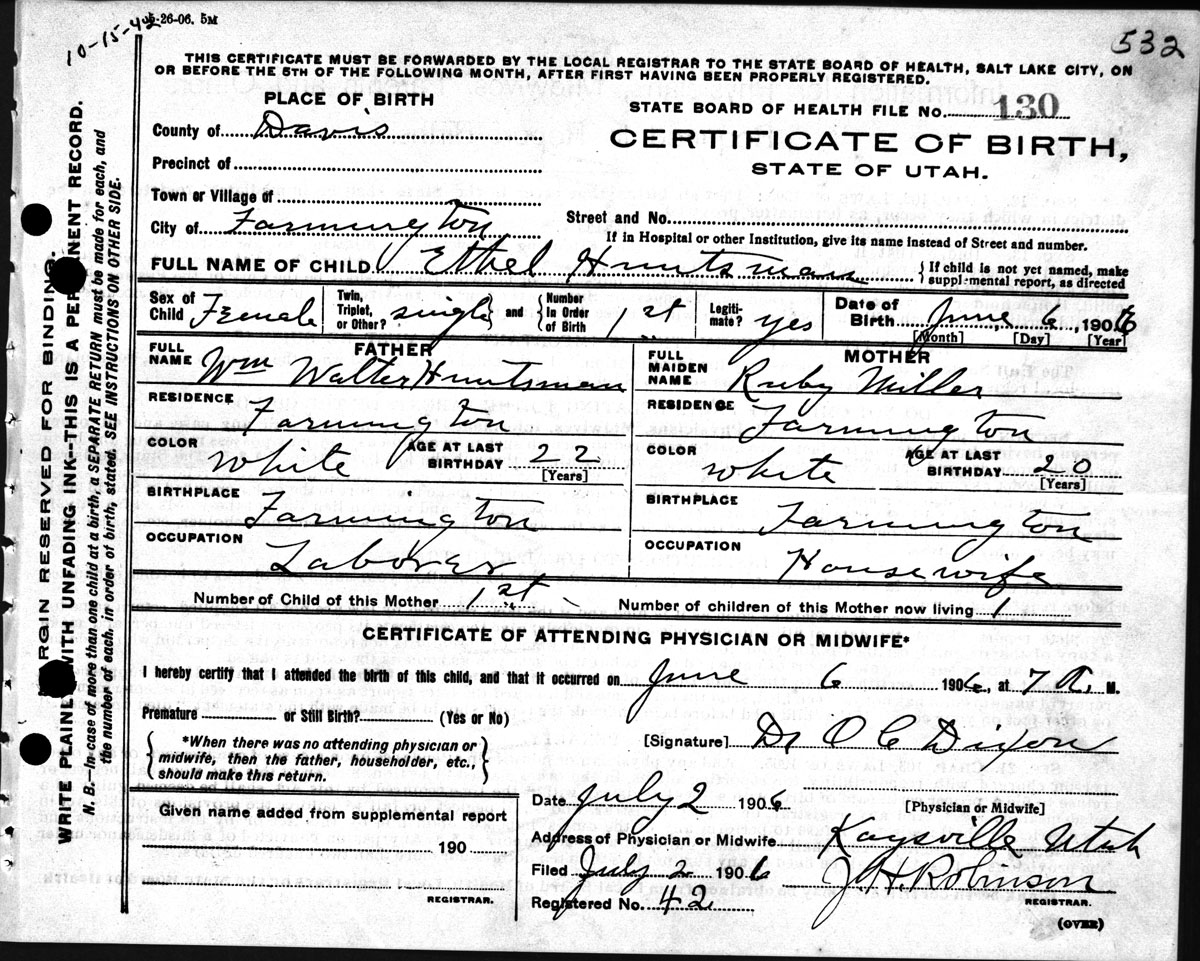 10-15-42
5-26-06. 5M
532
THIS CERTIFICATE MUST BE FORWARDED BY THE LOCAL REGISTRAR TO THE STATE BOARD OF HEALTH, SALT LAKE CITY, ON
OR BEFORE THE 5TH OF THE FOLLOWING MONTH, AFTER FIRST HAVING BEEN PROPERLY REGISTERED.
PLACE OF BIRTH
STATE BOARD OF HEALTH FILE No. 130
County of Davis
CERTIFICATE OF BIRTH,
Precinct of
STATE OF UTAH.
Town or Village of
City of Farmington
Street and No.
If in Hospital or other Institution, give its name instead of Street and number.
FULL NAME OF CHILD Ethel Huntsman { If child is not yet named, make
supplemental report, as directed
Sex of Child Female Twin, Triplet, or Other? single and Number In Order of Birth 1st Legiti-mate? yes Date of Birth June 6, 1906
[Month] [Day] [Year]
FATHER
FULL NAME Wm Walter Huntsman
MOTHER
FULL MAIDEN NAME Ruby Miller
RESIDENCE Farmington
RESIDENCE Farmington
COLOR White AGE AT LAST BIRTHDAY 22 [Years]
COLOR White AGE AT LAST BIRTHDAY 20 [Years]
BIRTHPLACE Farmington
BIRTHPLACE Farmington
OCCUPATION Laborer
OCCUPATION Housewife
Number of Child of this Mother 1st Number of children of this Mother now living 1
CERTIFICATE OF ATTENDING PHYSICIAN OR MIDWIFE*
I hereby certify that I attended the birth of this child, and that it occurred on June 6 1906, at 7 A. M.
Premature or Still Birth? (Yes or No)
{ *When there was no attending physician or
midwife, then the father, householder, etc.,
should make this return. }
[Signature] Dr O C Dixon
[Physician or Midwife]
Date July 2 1906
Given name added from supplemental report
190
REGISTRAR.
Address of Physician or Midwife Kaysville Utah
Filed July 2 1906 J H Robinson
Registered No. 42 REGISTRAR.
(OVER)
MARGIN RESERVED FOR BINDING.
WRITE PLAINLY WITH UNFADING INK-THIS IS A PERMANENT RECORD.
N. B.-In case of more than one child at a birth, a SEPARATE RETURN must be made for each, and
the number of each, in order of birth, stated. SEE INSTRUCTIONS ON OTHER SIDE.